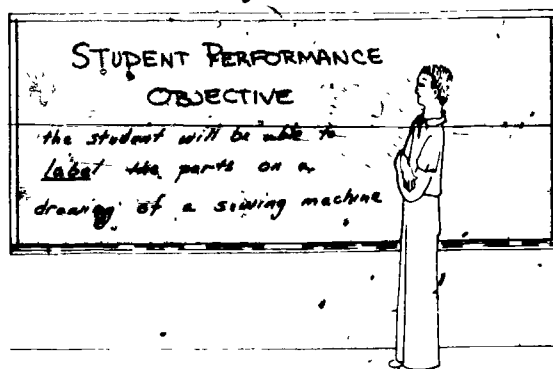 STUDENT PERFORMANCE
OBJECTIVE
the student will be able to
label the parts on a
drawing of a sewing machine